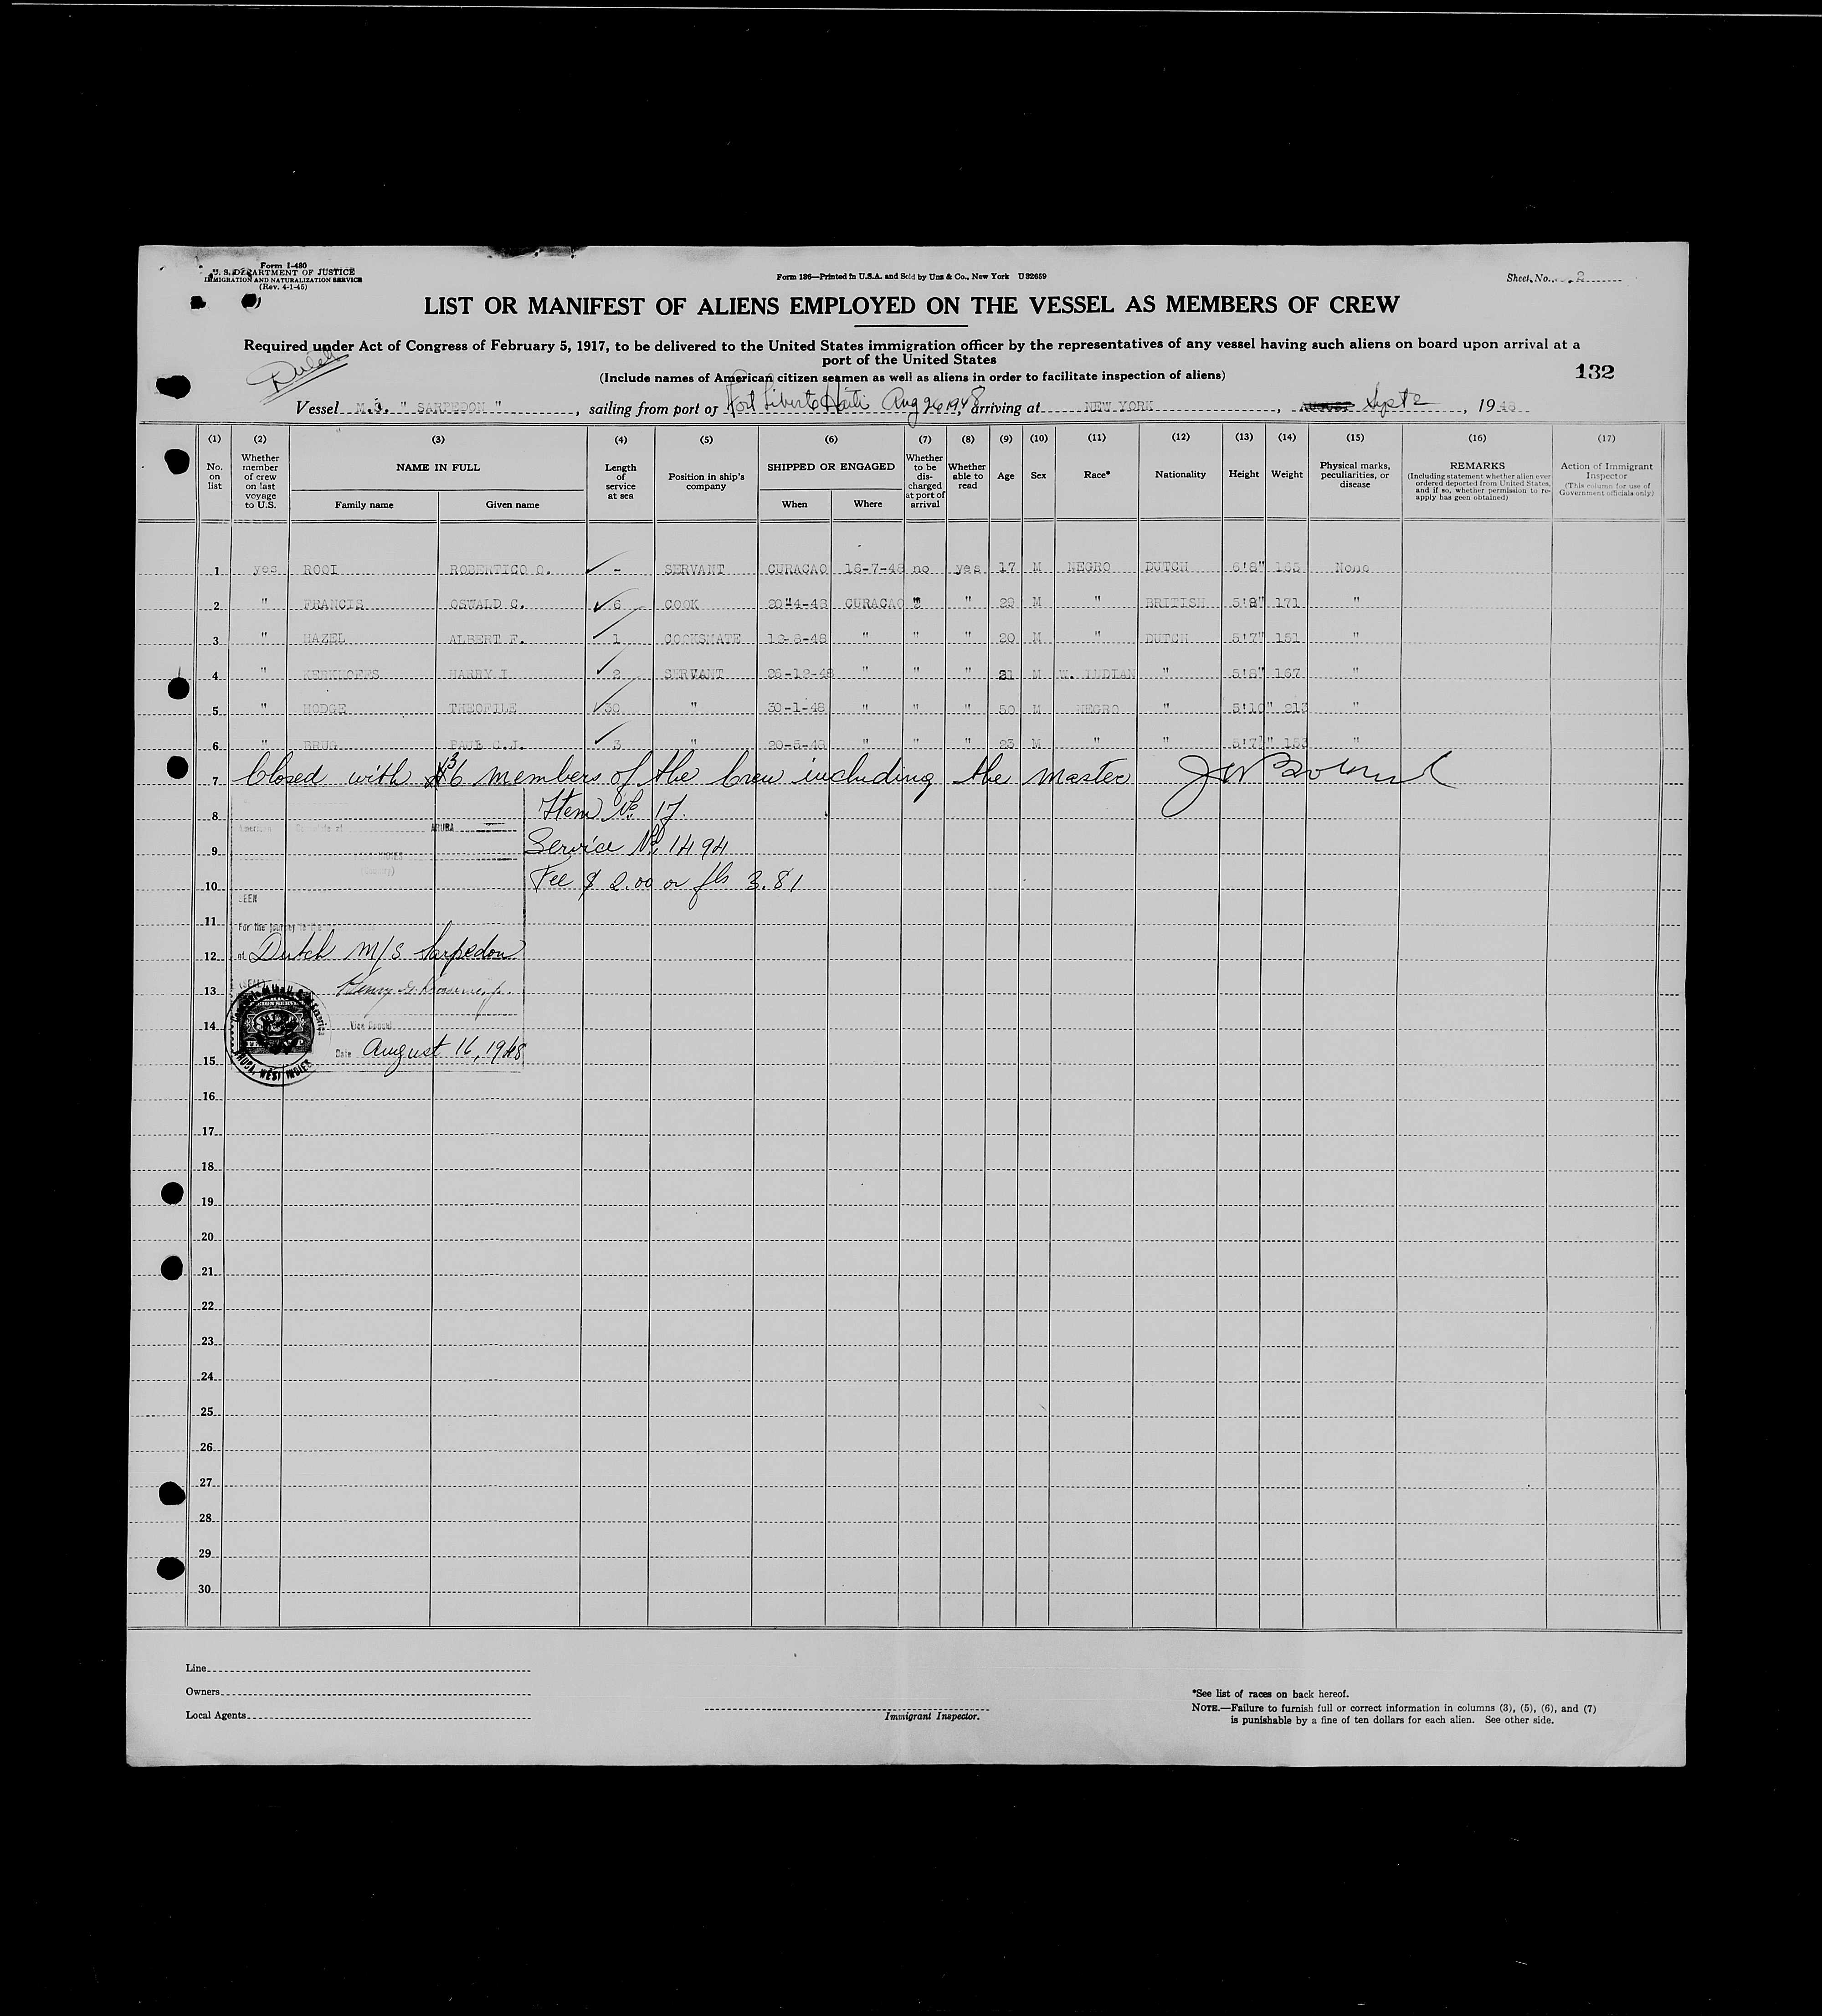 Form I-480
U. S. DEPARTMENT OF JUSTICE
IMMIGRATION AND NATURALIZATION SERVICE
(Rev. 4-1-45)
Form 136—Printed in U.S.A. and Sold by Unz & Co., New York U 32659
Sheet No. 2
LIST OR MANIFEST OF ALIENS EMPLOYED ON THE VESSEL AS MEMBERS OF CREW
Required under Act of Congress of February 5, 1917, to be delivered to the United States immigration officer by the representatives of any vessel having such aliens on board upon arrival at a
port of the United States
Dutch
(Include names of American citizen seamen as well as aliens in order to facilitate inspection of aliens)
132
Vessel M.S. " SARPEDON ", sailing from port of Fort Liberte Haiti Aug 26 1948, arriving at NEW YORK, Sept 2, 1948
(1) (2) (3) (4) (5) (6) (7) (8) (9) (10) (11) (12) (13) (14) (15) (16) (17)
No. on list
Whether member of crew on last voyage to U.S.
NAME IN FULL
Family name
Given name
Length of service at sea
Position in ship's company
SHIPPED OR ENGAGED
When
Where
Whether to be discharged at port of arrival
Whether able to read
Age
Sex
Race*
Nationality
Height
Weight
Physical marks, peculiarities, or disease
REMARKS
(Including statement whether alien ever ordered deported from United States, and if so, whether permission to re-apply has geen obtained)
Action of Immigrant Inspector
(This column for use of Government officials only)
1 yes ROOI ROBERTICO O. - SERVANT CURACAO 16-7-48 no yes 17 M NEGRO DUTCH 6'8" 165 None
2 " FRANCIS OSWALD C. 6 COOK 20-4-48 CURACAO " " 29 M " BRITISH 5'8" 171 "
3 " HAZEL ALBERT F. 1 COOKSMATE 12-6-48 " " " 20 M " DUTCH 5'7" 151 "
4 " KERKHOFFS HARRY I 2 SERVANT 26-12-48 " " " 21 M W. INDIAN " 5'8" 167 "
5 " HODGE THEOFILE 30 " 30-1-48 " " " 50 M NEGRO " 5'10" 213 "
6 " BRUG PAUL C.J. 3 " 20-5-48 " " " 23 M " " 5'7" 153 "
7 Closed with 36 members of the Crew including the master
8 Item No 17.
American ARUBA
9 Service No 1494
WEST INDIES
(Country)
10 Fee $ 2.00 or fls 3.81
SEEN
11 For the journey to the
12 of Dutch M/S Sarpedon
13 (SEAL)
14 Vice Consul
15 Date August 16, 1948
ARUBA, WEST INDIES
16
17
18
19
20
21
22
23
24
25
26
27
28
29
30
Line
Owners
Local Agents
Immigrant Inspector.
*See list of races on back hereof.
NOTE.—Failure to furnish full or correct information in columns (3), (5), (6), and (7)
is punishable by a fine of ten dollars for each alien. See other side.